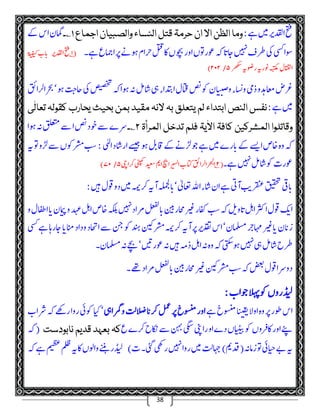 فتح القدیر میں ہے: وما الظن الا ان حرمۃ قتل النساء والصبیان اجماع ۱؎۔ گمان اس کے
سوا کسی طرف نہیں جاتا کہ عورتوں اور بچوں کا قتل حرام ہونے پر اجماع ہے۔ (۱؎ فتح القدیر باب کیفیۃ
القتال مکتبہ نوریہ رضویہ سکھر ۵/ ۲۰۲)
غرض معاہد وذمی ونساء وصبیان کو نص قتال ابتداءً ہی شامل نہ ہوا کہ تخصیص کی حاجت ہو، بحر الرائق
میں ہے: نفس النص ابتداء لم یتعلق بہ لانہ مقید بمن بحیث یحارب کقولہ تعالٰی
وقاتلوا المشرکین کافۃ الآیۃ فلم تدخل المرأۃ ۲؎۔ سرے سے خود نص اسے متعلق نہ ہوا
کہ وہ خاص اس کے بارے میں ہے جو لڑنے کے قابل ہو جیسے ارشاد الٰہی: سب مشرکوں سے لڑو تو یہ
عورت کو شامل نہیں ہوا۔ (۲؎ بحر الرائق کتاب السیر ایچ ایم سعید کمپنی کراچی ۵/ ۷۷)
باقی تحقیق عنقریب آتی ہے ان شاء اللہ تعالٰی، بالجملہ آیہ کریمہ میں دو قول ہوں:
قول اول اکثر اہل تاویل کہ سب کفار غیر محاربین بالفعل مراد نہیں بلکہ خاص اہل عہد و پیمان یا اطفال و
زنان یا مظاہر غیر مہاجر مسلمان، اس تقدیر پر آیہ کریمہ مشرکین ہند کو جن سے اتحاد و وداد منایا جارہا ہے کسی
طرح شامل ہی نہیں ہوسکتی کہ وہ نہ اہل ذمہ ہیں نہ عورتیں نہ بچے نہ مسلمان۔
دوسرا قول بعض کہ سب مشرکین غیر محاربین بالفعل مراد تھے۔
لیڈروں کو پہلا جواب:
اس طور پر وہ اولا یقینا منسوخ ہے اور منسوخ پر عمل کرنا ضلالت وگمراہی، کیا کوئی روا رکھے گا کہ شراب
پئے اور کافروں کو بیٹیاں دے اور اپنی سگی بہن سے نکاح کرے ع کہ بعہد قدیم نابودست (کہ
یہ بے حیائی تو زمانہ (قدیم) جہالت میں روا نہیں رکھی گئی۔ ت) لیڈر بننے والوں کا یہ ظلم عظیم ہے کہ
38